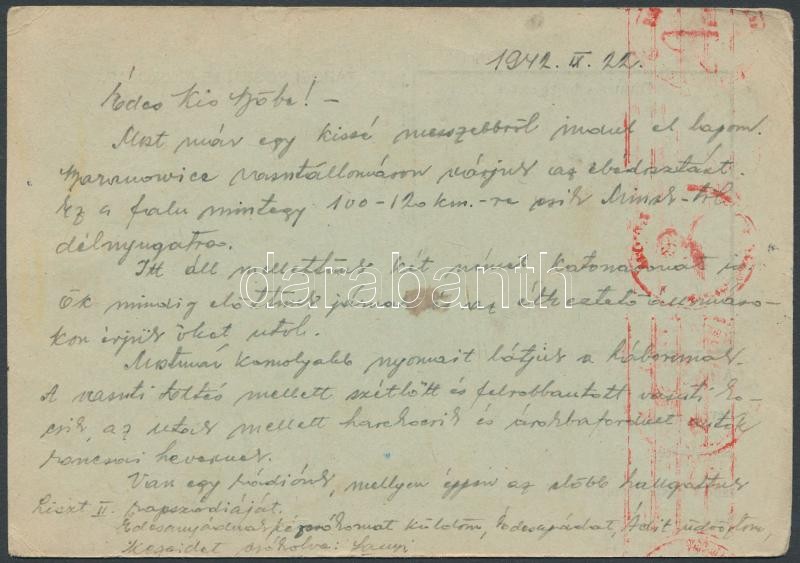 1942. IX. 22.
Édes kis Böbe! -
Most már egy kissé messzebbről indul el lapom.
Baranowice vasutállomáson várjuk az ebédosztást.
Ez a falu mintegy 100-120 km.-re esik Minsk-től
délnyugatra.
Itt áll mellettünk két német katonavonat is.
Ők mindig előttünk az étkeztető állomáso-
kon érjük őket utol.
Mostmár komolyabb nyomait látjuk a háborunak.
A vasuti töltés mellett szétlőtt és felrobbantott vasuti ko-
csik, az utak mellett harckocsik és árokbafordult autók
roncsai hevernek.
Van egy rádiónk, mellyen éppen az előbb hallgattuk
Liszt II. rapszodiáját.
Édesanyádnak kézcsókomat küldöm, Édesapádat, Ádit üdvözlöm,
Kezeidet csókolva: Sanyi
darabanth